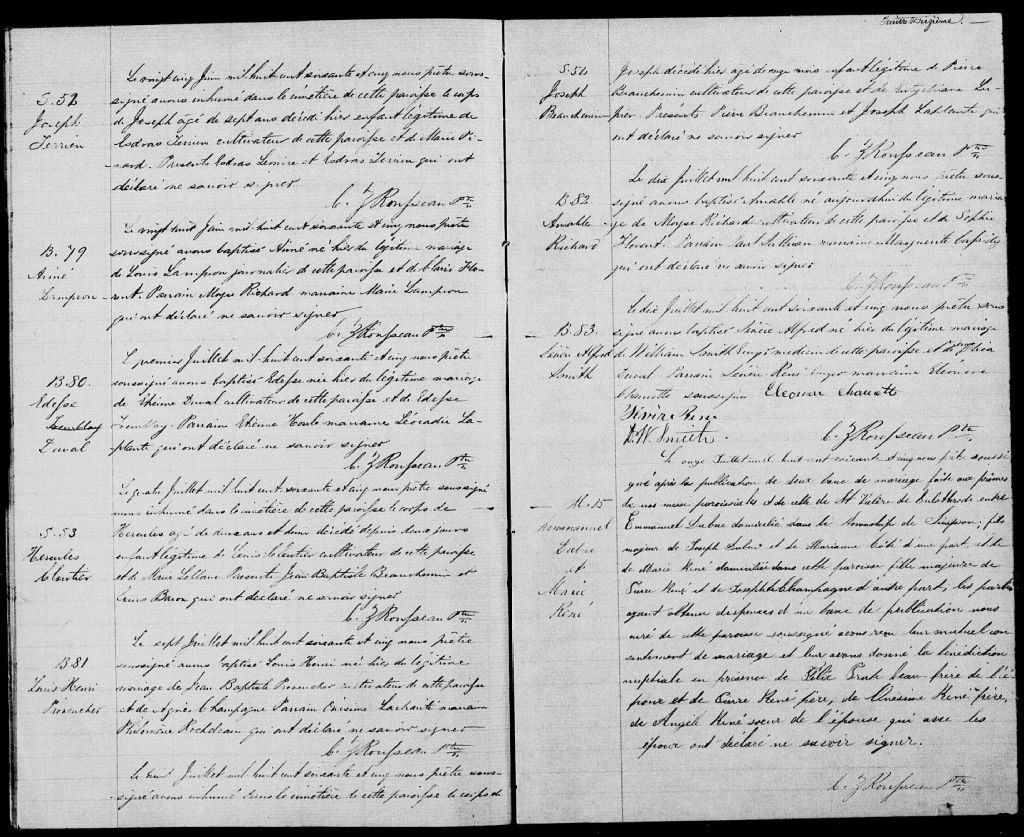 S. 52
Joseph
Terrien
Le vingt cinq Juin mil huit cent soixante et cinq nous prêtre sous-
signé avons inhumé dans le cimetière de cette paroisse le corps
de Joseph âgé de sept ans décédé hier enfant légitime de
Esdras Terrien cultivateur de cette paroisse et de Marie Pi-
nard. Présents Esdras Lemire et Esdras Terrien qui ont
déclaré ne savoir signer
C. Z Rousseau Ptre
B. 79
Aimé
Lampron
Le vingt huit Juin mil huit cent soixante et cinq nous prêtre
soussigné avons baptisé Aimé né hier du légitime mariage
de Louis Lampron journalier de cette paroisse et de Claris Flo-
rent. Parrain Moyse Richard marraine Marie Lampron
qui ont déclaré ne savoir signer
C. Z Rousseau Ptre
B 80.
Edesse
Tremblay
Duval
Le premier Juillet mil huit cent soixante et cinq nous prêtre
soussigné avons baptisé Edesse née hier du légitime mariage
de Etienne Duval cultivateur de cette paroisse et de Edesse
Tremblay. Parrain Etienne Houle marraine Léocadie La-
plante qui ont déclaré ne savoir signer
C. Z Rousseau Ptre
S. 53
Hercules
Cloutier
Le quatre Juillet mil huit cent soixante et cinq nous prêtre soussigné
avons inhumé dans le cimetière de cette paroisse le corps de
Hercules âgé de deux ans et demi décédé depuis deux jours
enfant légitime de Louis Cloutier cultivateur de cette paroisse
et de Marie Leblanc Présents Jean Baptiste Beauchemin et
Louis Baron qui ont déclaré ne savoir signer
C. Z Rousseau Ptre
B 81
Louis Henri
Provencher
Le sept Juillet mil huit cent soixante et cinq nous prêtre
soussigné avons baptisé Louis Henri né hier du légitime
mariage de Jean Baptiste Provencher cultivateur de cette paroisse
et de Agnès Champagne Parrain Onésime Lacharité marraine
Philomène Rocheleau qui ont déclaré ne savoir signer
C. Z Rousseau Ptre
Le neuf Juillet mil huit cent soixante et cinq nous prêtre sous-
signé avons inhumé dans le cimetière de cette paroisse le corps de
Feuillet dixième.
S. 54
Joseph
Beauchemin
Joseph décédé hier âgé de onze mois enfant légitime de Pierre
Beauchemin cultivateur de cette paroisse et de
Présents Pierre Beauchemin et Joseph Laplante qui
ont déclaré ne savoir signer
C. Z Rousseau Ptre
B. 82
Amable
Richard
Le dix Juillet mil huit cent soixante et cinq nous prêtre sous-
signé avons baptisé Amable né aujourd'hui du légitime maria-
ge de Moyse Richard cultivateur de cette paroisse et de Sophie
Florent. Parrain Paul Sullivan marraine Marguerite
qui ont déclaré ne savoir signer
C. Z Rousseau Ptre
B. 83.
Alfred
Smith
Le dix Juillet mil huit cent soixante et cinq nous prêtre sous
signé avons baptisé Alfred né hier du légitime mariage
de William Smith médecin de cette paroisse et de
Parrain René marraine Eléonore
Charette soussignés Eleonore Charette
René
D. W. Smith
C. Z Rousseau Ptre
M. 15
Emmanuel
Dubue
et
Marie
René
Le onze Juillet mil huit cent soixante et cinq nous prêtre soussi-
gné après la publication de deux banc de mariage faite aux prônes
de nos messe paroissiales et de celle de St Valère de Bulstrode entre
Emmanuel Dubue domicilié dans le Township de Simpson, fils
majeur de Joseph Dubue et de Marianne Côté d'une part, et de
de Marie René domiciliée dans cette paroisse fille majeure de
Pierre René et de Josephte Champagne d'autre part, les parties
ayant obtenu dispenses d'un banc de publication nous
curé de cette paroisse soussigné avons reçu leur mutuel con
sentement de mariage et leur avons donné la bénédiction
nuptiale en présence de beau frère de l'é-
poux et de Pierre René père, de Onésime René frère,
de Angèle René soeur de l'épouse qui avec les
époux ont déclaré ne savoir signer.
C. Z Rousseau Ptre